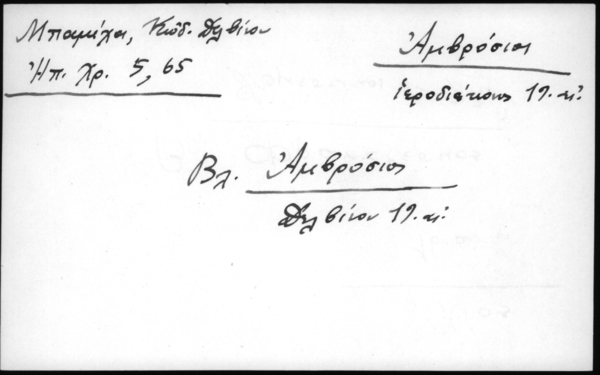 Μπαμίχα, Κώδ. Δελβίνου
Ἠπ. Χρ. 5, 65
Ἀμβρόσιος
ἱεροδιάκονος 19. αἰ.
Βλ. Ἀμβρόσιος
Δελβίνου 19. αἰ.